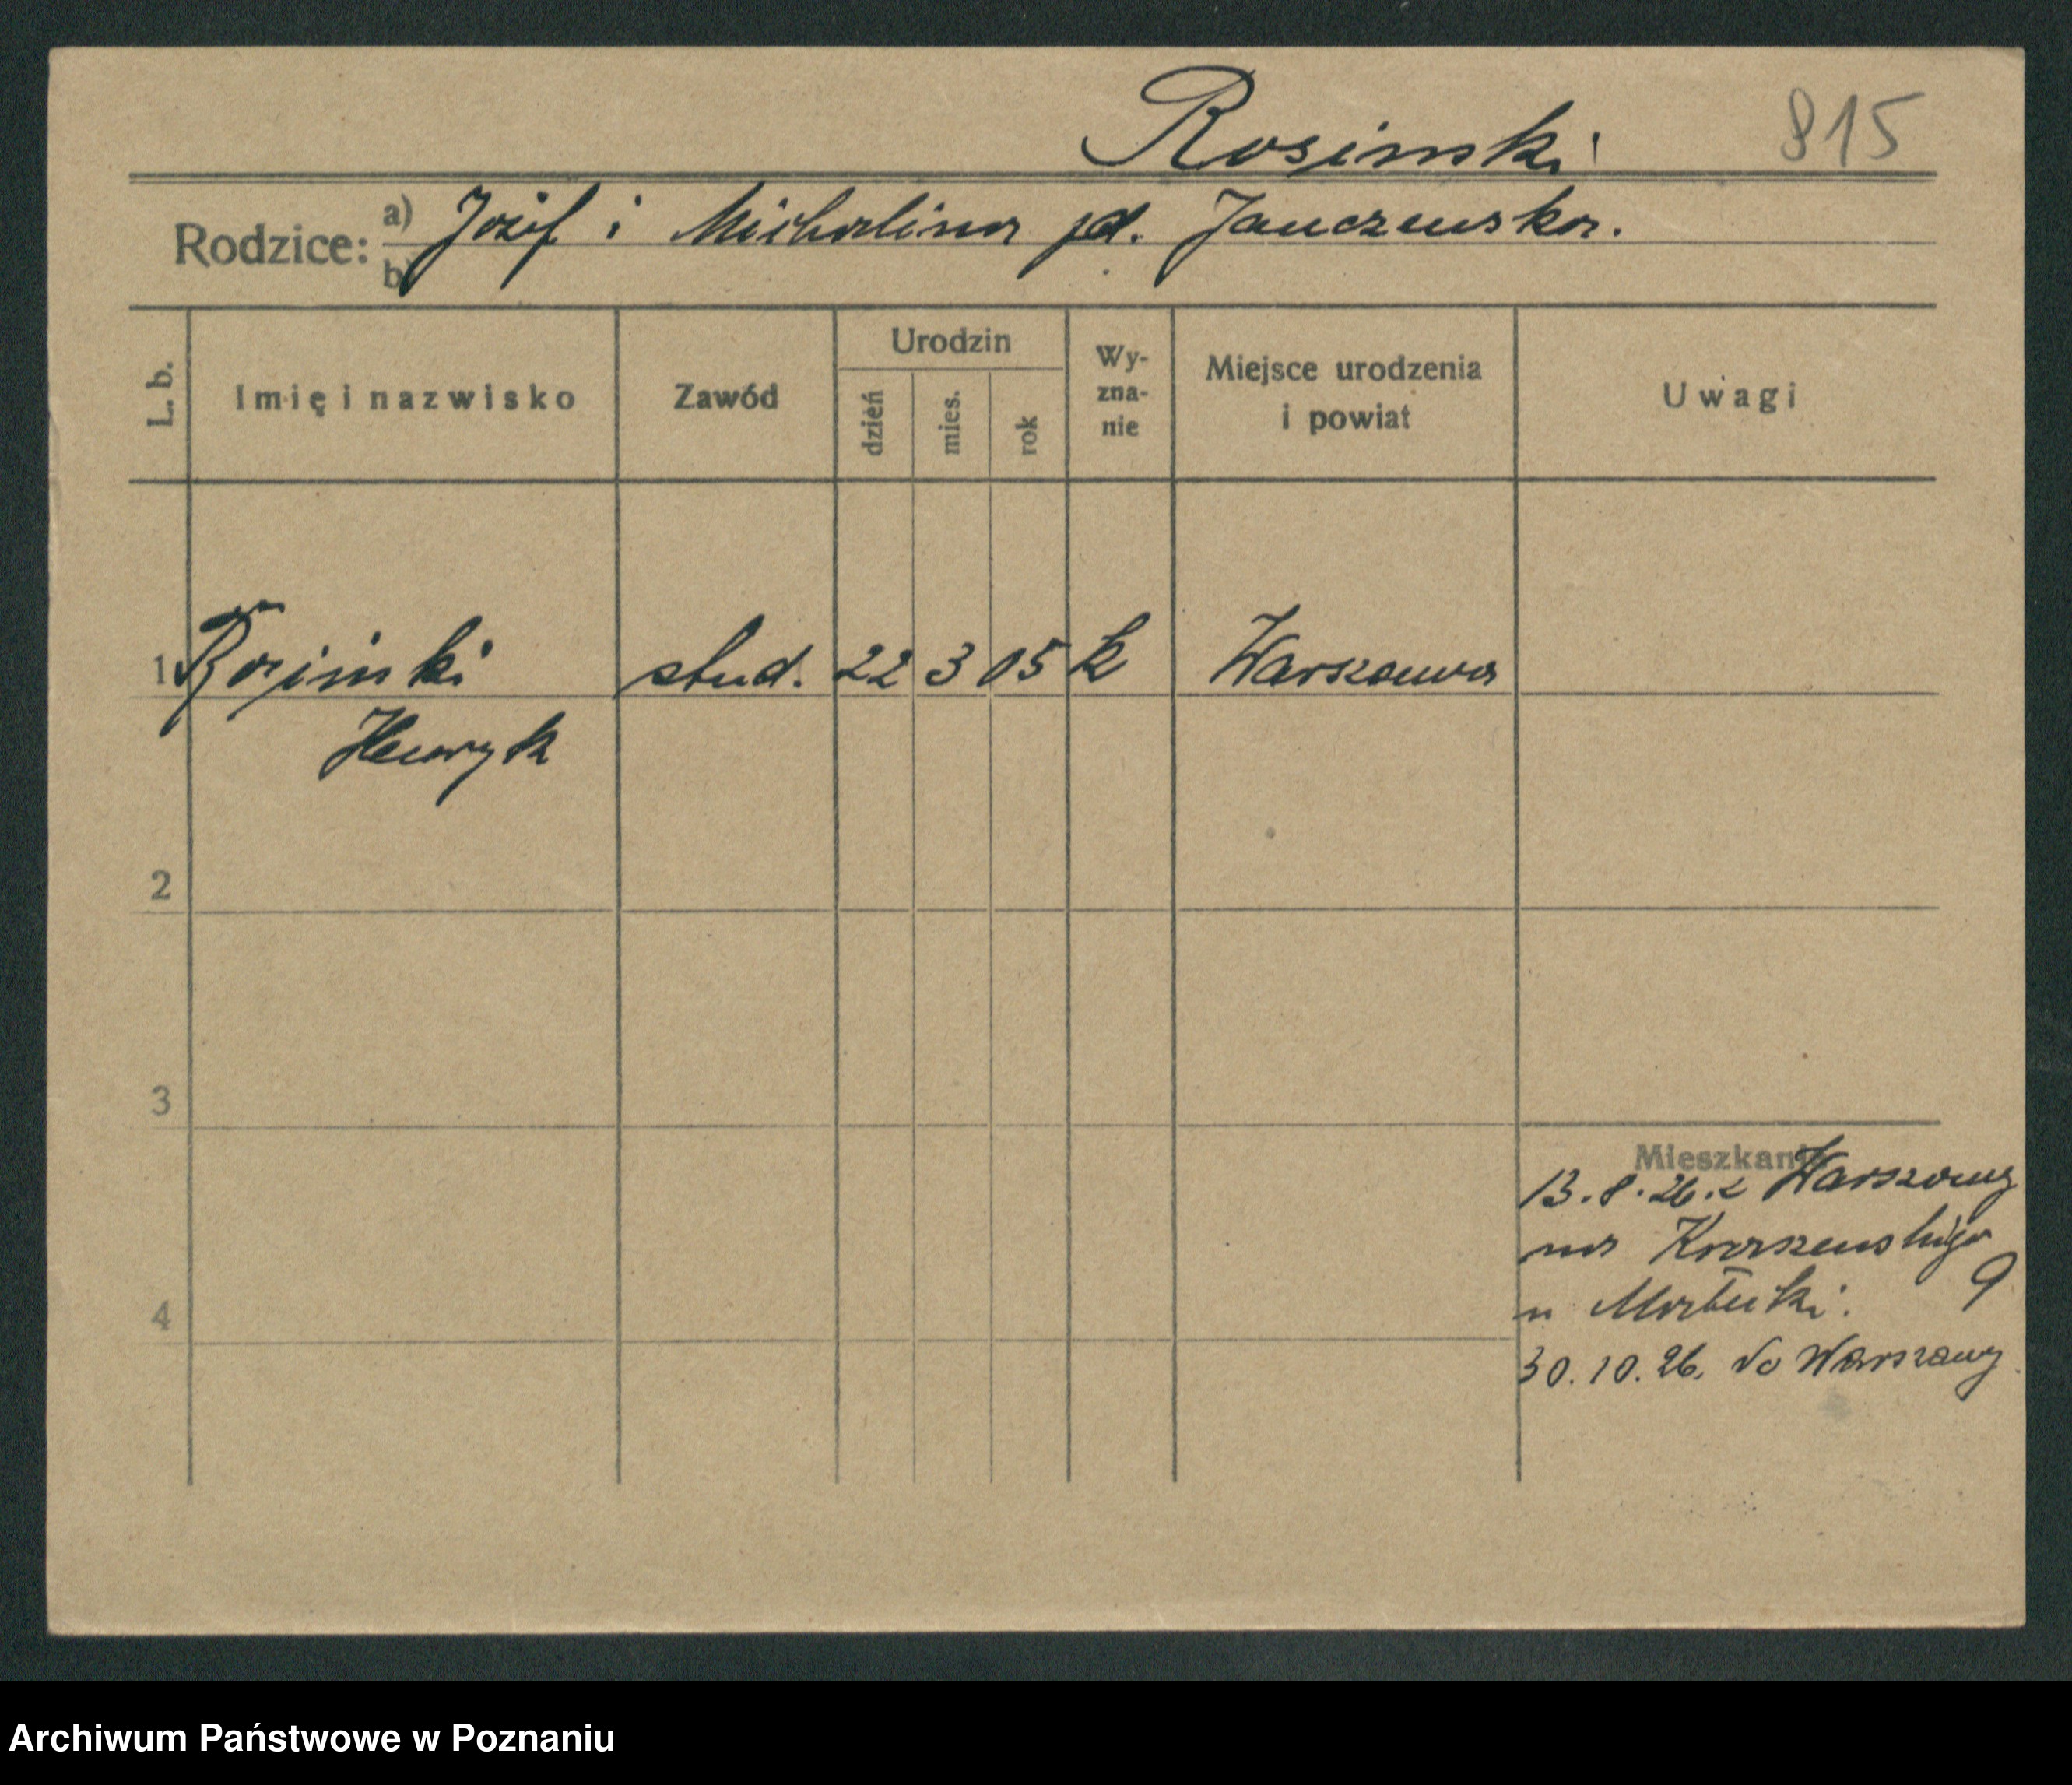 Rosiński 815
Rodzice: a) Józef i Michalina zd. Janczewska.
b)
L. b. Imię i nazwisko Zawód Urodzin dzień mies. rok Wyznanie Miejsce urodzenia i powiat Uwagi
1 Rosiński stud. 22 3 05 k Warszawa
Henryk
2
3
Mieszkan
13.8.26. z Warszawy
na Kraszewskiego
9
u
4
30.10.26. do Warszawy
Archiwum Państwowe w Poznaniu